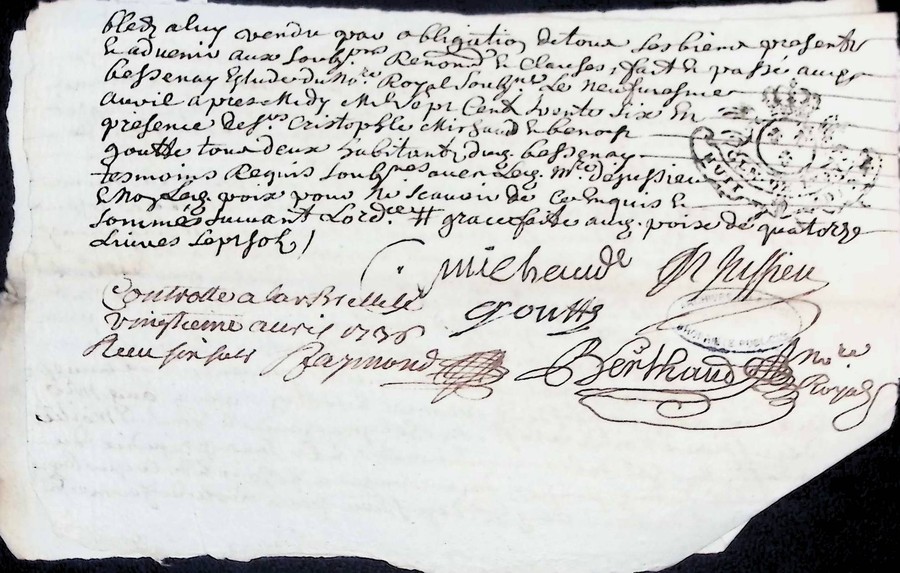 bledz a luy vendu par obligation de tous ses biens presents
& advenir aux soubs.nes Renond & Clauses, fait & passé aud.
bessenay Estude du No.re Royal soubs.né Le neufviesme
avril apres Midy Mil Sept Cent trente six En
presence de s.rs Cristophle Michaud & benoist
goutte tous deux habitants dud. bessenay
tesmoins Requis soubs.nes avec Led. m.re dejussieu
& Non Led. poix pour ne scavoir de ce Enquis &
sommés suivant Lord.ce # grace faite aud. poix de quatorze
Livres sept sols /
Michaud
DJussieu
goutte
Controllé a la Brelle le
vingtieme avril 1736
Receu six sols Raymond
Berthaud No.re Royal
HUIT